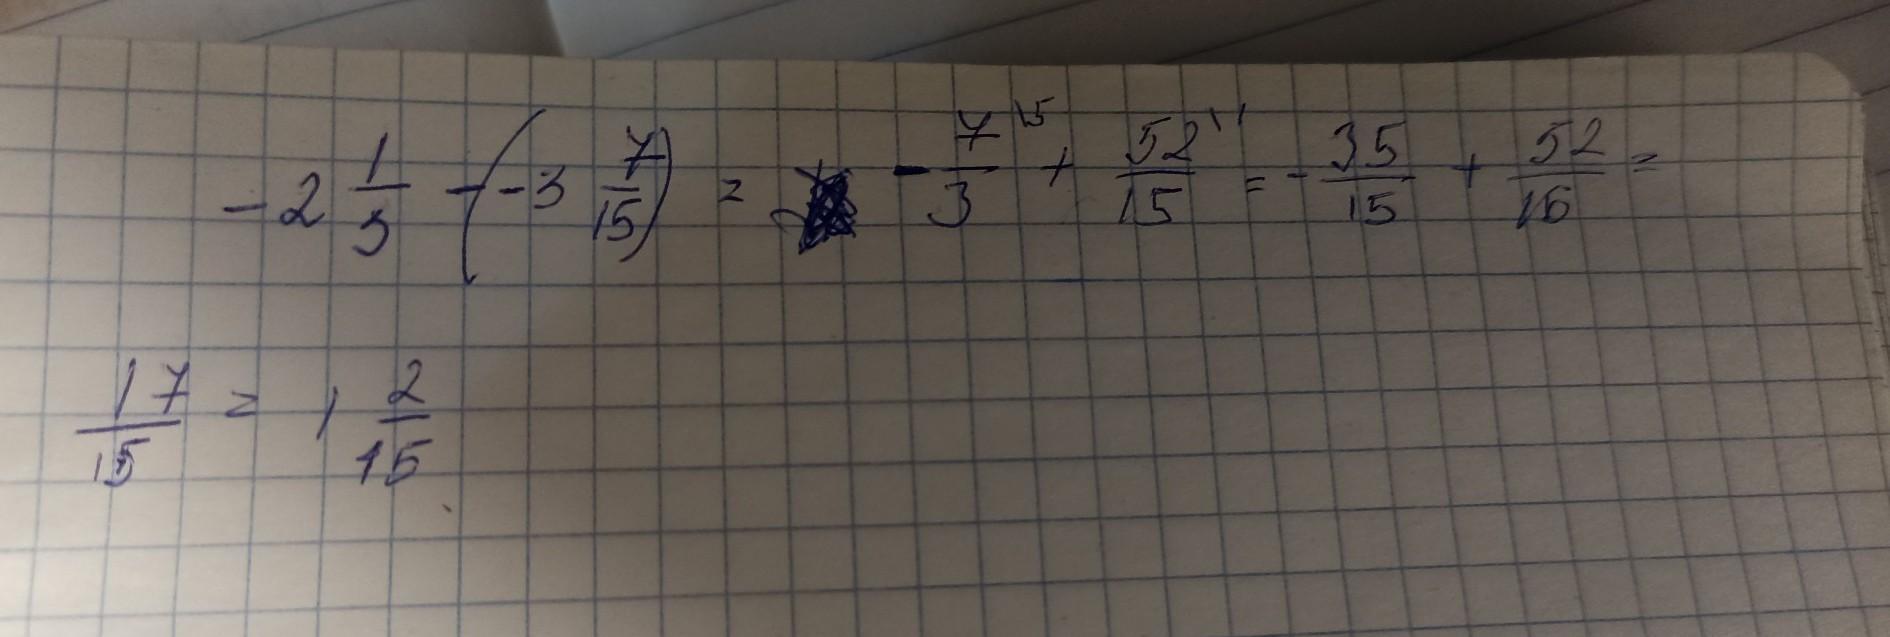 -2 1/3 - (-3 7/15) = - 7/3 \5 + 52/15 \1 = - 35/15 + 52/15 =
17/15 = 1 2/15